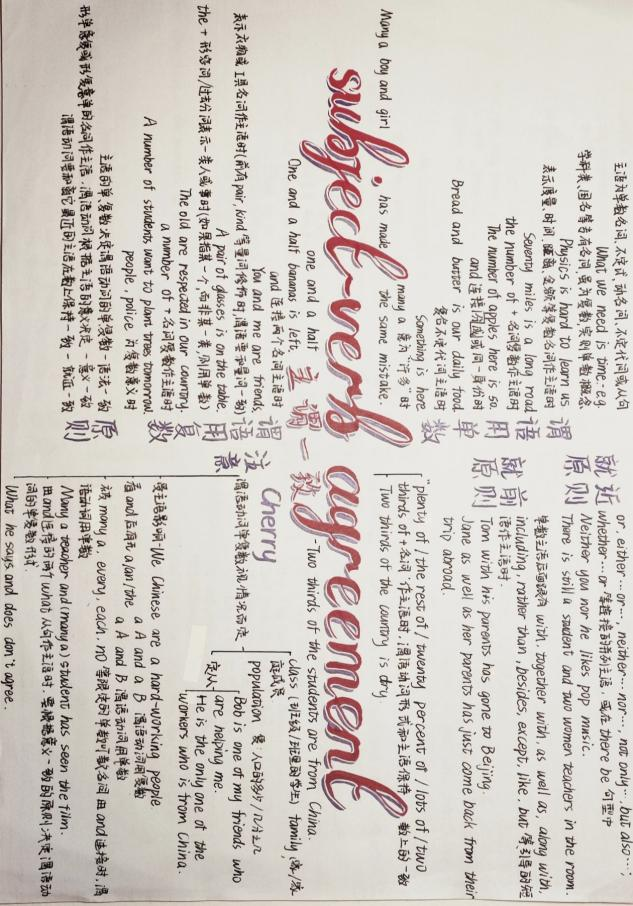 主语为单数名词,不定式,动名词,不定代词或从句
What we need is time. e.g.
学科类,国名等专有名词虽为复数实则单数概念
Physics is hard to learn us
表示度量,时间,距离,金额等复数名词作主语时
Seventy miles is a long road
the number of + 名词复数作主语时
The number of apples here is so.
and 连接同位或同一身份时
Bread and butter is our daily food.
复合不定代词主语时
Something is here
many a 意为"许多"时
Many a boy and girl has made the same mistake.
谓语用单数
subject-verb agreement
主谓一致
one and a half
One and a half bananas is left.
and 连接两个名词主语时
You and me are friends.
表示衣物或工具名词作主语时(前有pair, kind等量词修饰时,谓语和量词一致)
A pair of glasses is on the table.
the + 形容词/过去分词表示一类人或事时(如果指某一个,而非某一类,则用单数)
The old are respected in our country.
a number of + 名词复数作主语时
A number of students want to plant trees tomorrow.
people, police 为复数意义时
谓语用复数
主语的单复数决定谓语动词的单复数-语法一致
形单意复或形复意单的名词作主语,谓语动词根据主语的意义决定-意义一致
谓语动词要和离它最近的主语在数上保持一致-就近一致
原则
就近原则
or, either...or..., neither...nor..., not only...but also...,
whether...or 等连接的并列主语 或在 there be 句型中
Neither you nor he likes pop music.
There is still a student and two women teachers in the room.
就前原则
单数主语后面跟有 with, together with, as well as, along with,
including, rather than, besides, except, like, but 等引导的短
语作主语时.
Tom with his parents has gone to Beijing.
Jane as well as her parents has just come back from their
trip abroad.
"plenty of / the rest of / twenty percent of / lots of / two
thirds of + 名词"作主语时,谓语动词形式和主语保持数上的一致
Two thirds of the country is dry.
-Two thirds of the students are from China.
注意
Cherry
谓语动词单复数视情况而定
class (班级/班里的学生) family (家/家
庭成员
population 复:人口的多少/几分之几
定从
Bob is one of my friends who
are helping me.
He is the only one of the
workers who is from China.
We Chinese are a hard-working people
a/the A and B 谓语动词用单数
a A and a B 谓语动词用复数
被 many a, every, each, no 等限定的单数可数名词由 and 连接时,谓
语动词用单数
Many a teacher and (many a) student has seen the film.
由 and 连接的两个what从句作主语时,要根据意义一致的原则决定谓语动
词的单复数形式.
What he says and does don't agree.